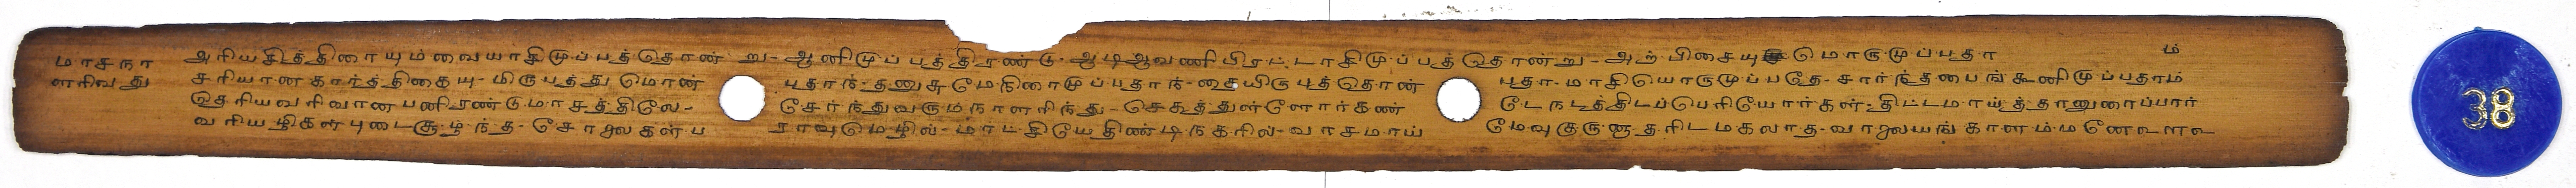 மாசநா அரியசித்திரையும்வையாசிமுப்பத்தொன் று- ஆனிமுப்பத்திரண்டு- ஆடிஆவணிபிரட்டாசிமுப்பத்தொன்று- அற்பிசையு மொருமுப்பதா ம்
ளறிவது சரியானகார்த்திகையு- மிருபத்து மொன் பதாந்- தனுசுமேநிறாமுப்பதாந்- தையிருபத்தொன் பதா- மாசியொருமுப்பதே- சார்ந்தபைங்கூனிமுப்பதாம்
தெரியவரிவான பனிரண்டுமாசத்திலே- சேர்ந்துவரும்நாளறிந்து- செகத்துள்ளோர்கண் டே நடத்திடப்பெரியோர்கள்- திட்டமாய்த்தானுரைப்பார்
வரியழிகள்புடைசூழ்ந்த- சோலைகள்ப ராவுமெழில்- மாட்சியேதிண்டிநகரில்- வாசமாய் மேவுகுருணாதரிடமகலாத- வாலையங்